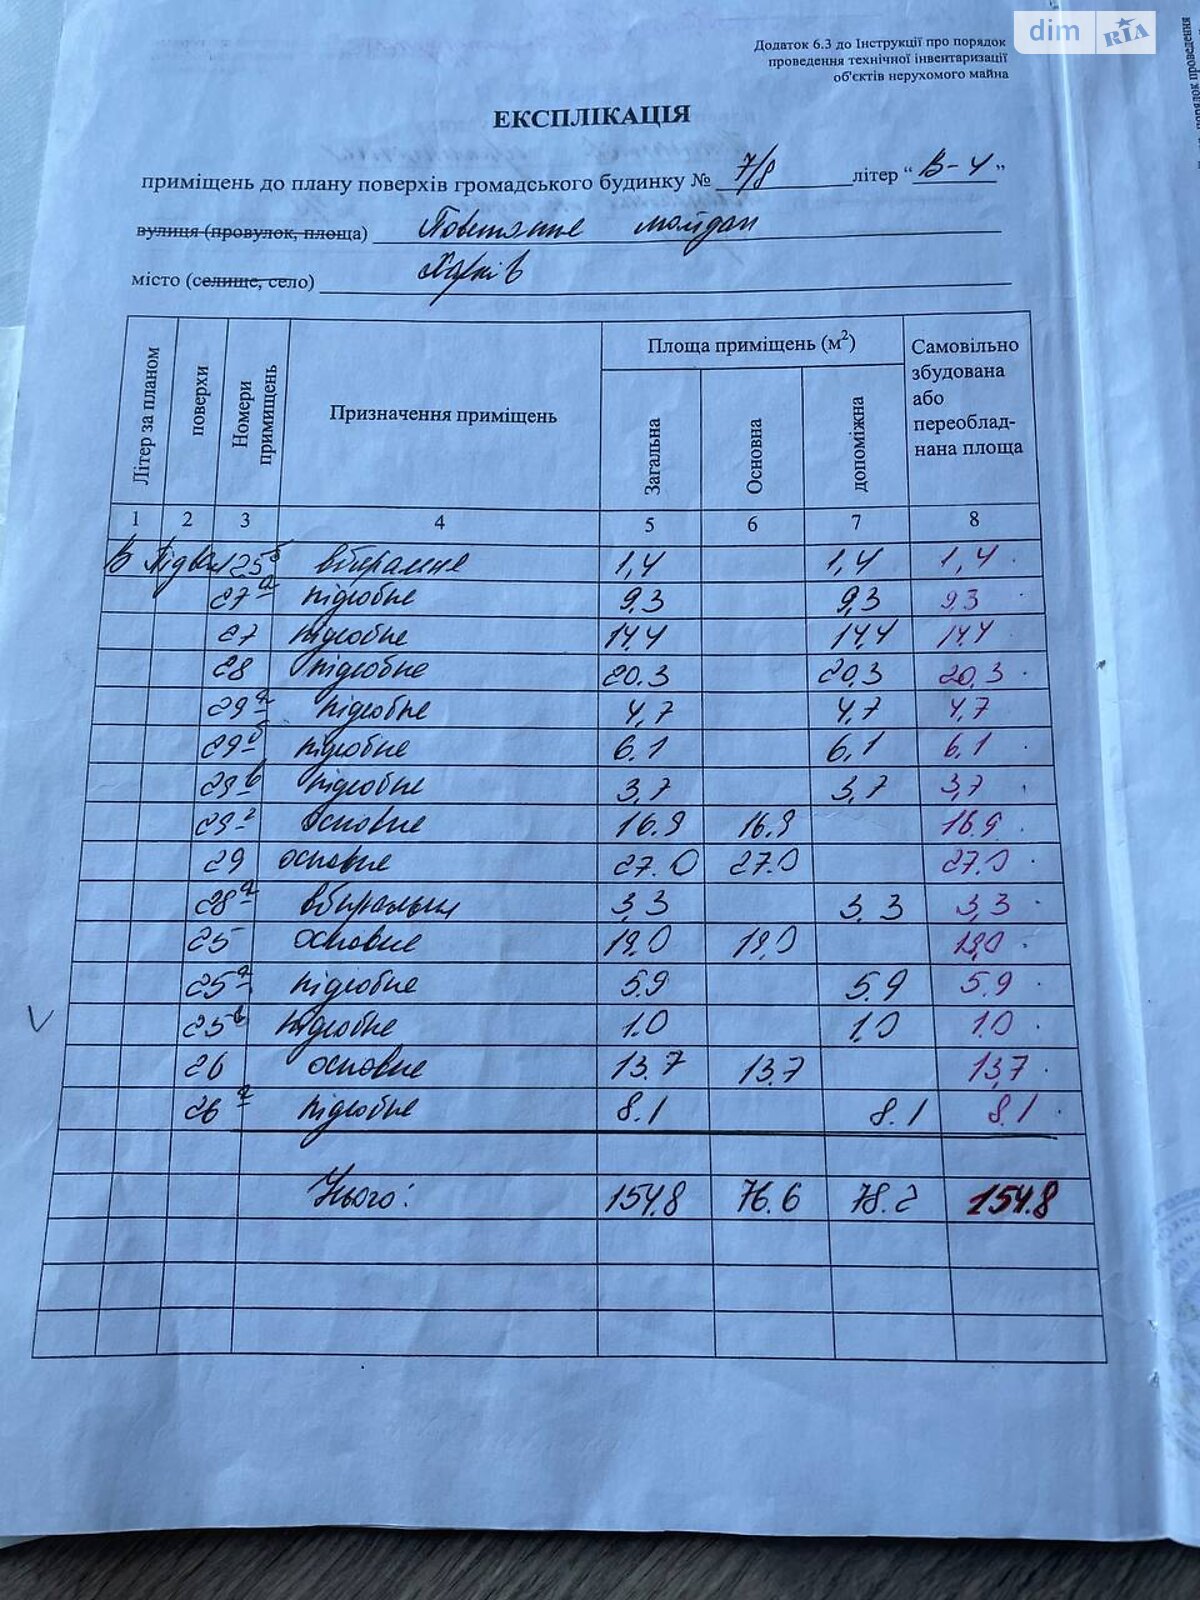 dim RIA
Додаток 6.3 до Інструкції про порядок
проведення технічної інвентаризації
об'єктів нерухомого майна
ЕКСПЛІКАЦІЯ
приміщень до плану поверхів громадського будинку № 7/8 літер “В-4”
вулиця (провулок, площа) майдан
місто (селище, село) Харків
Літер за планом поверхи Номери примищень Призначення приміщень Площа приміщень (м2) Загальна Основна допоміжна Самовільно збудована або переоблад-нана площа
1 2 3 4 5 6 7 8
В Підвал 25б вбиральне 1,4 1,4 1,4
27а підсобне 9,3 9,3 9,3
27 підсобне 14,4 14,4 14,4
28 підсобне 20.3 20,3 20,3
29а підсобне 4,7 4,7 4,7
29б підсобне 6.1 6,1 6,1
29в підсобне 3,7 3,7 3,7
29г основне 16.9 16.9 16.9
29 основне 27.0 27.0 27.0
28а вбиральня 3,3 3,3 3,3
25 основне 19,0 19,0 19,0
25а підсобне 5.9 5.9 5.9
25в підсобне 1.0 1.0 1.0
26 основне 13.7 13,7 13,7
26а підсобне 8.1 8.1 8.1
Усього: 154.8 76.6 78.2 154.8